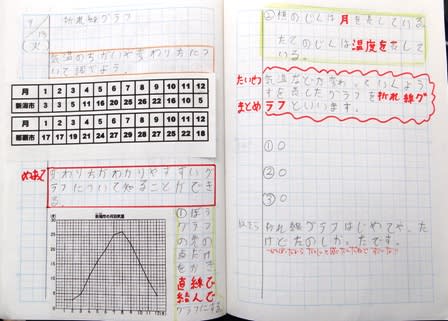 9/13(火)
折れ線グラフ
気温のちがいや変わり方につ
いて調べよう。
月 1 2 3 4 5 6 7 8 9 10 11 12
新潟市 3 3 5 11 16 20 25 26 22 16 10 5
月 1 2 3 4 5 6 7 8 9 10 11 12
那覇市 17 17 19 21 24 27 29 28 27 25 22 18
めあて
変わり方がわかりやすいグ
ラフについて知ることができ
る。
新潟市の月別気温
①ぼう
グラフ
の点
だけ
をかき
直線で
結んで
グラフにする。
②横のじくは月を表している
たてのじくは温度を表して
いる。
たいせつ
まとめ
気温など
す を表したグラフを折れ線グ
ラフといいます。
①○
②○
③○
折れ線グラフはじめてや
たけどたのしかったです。